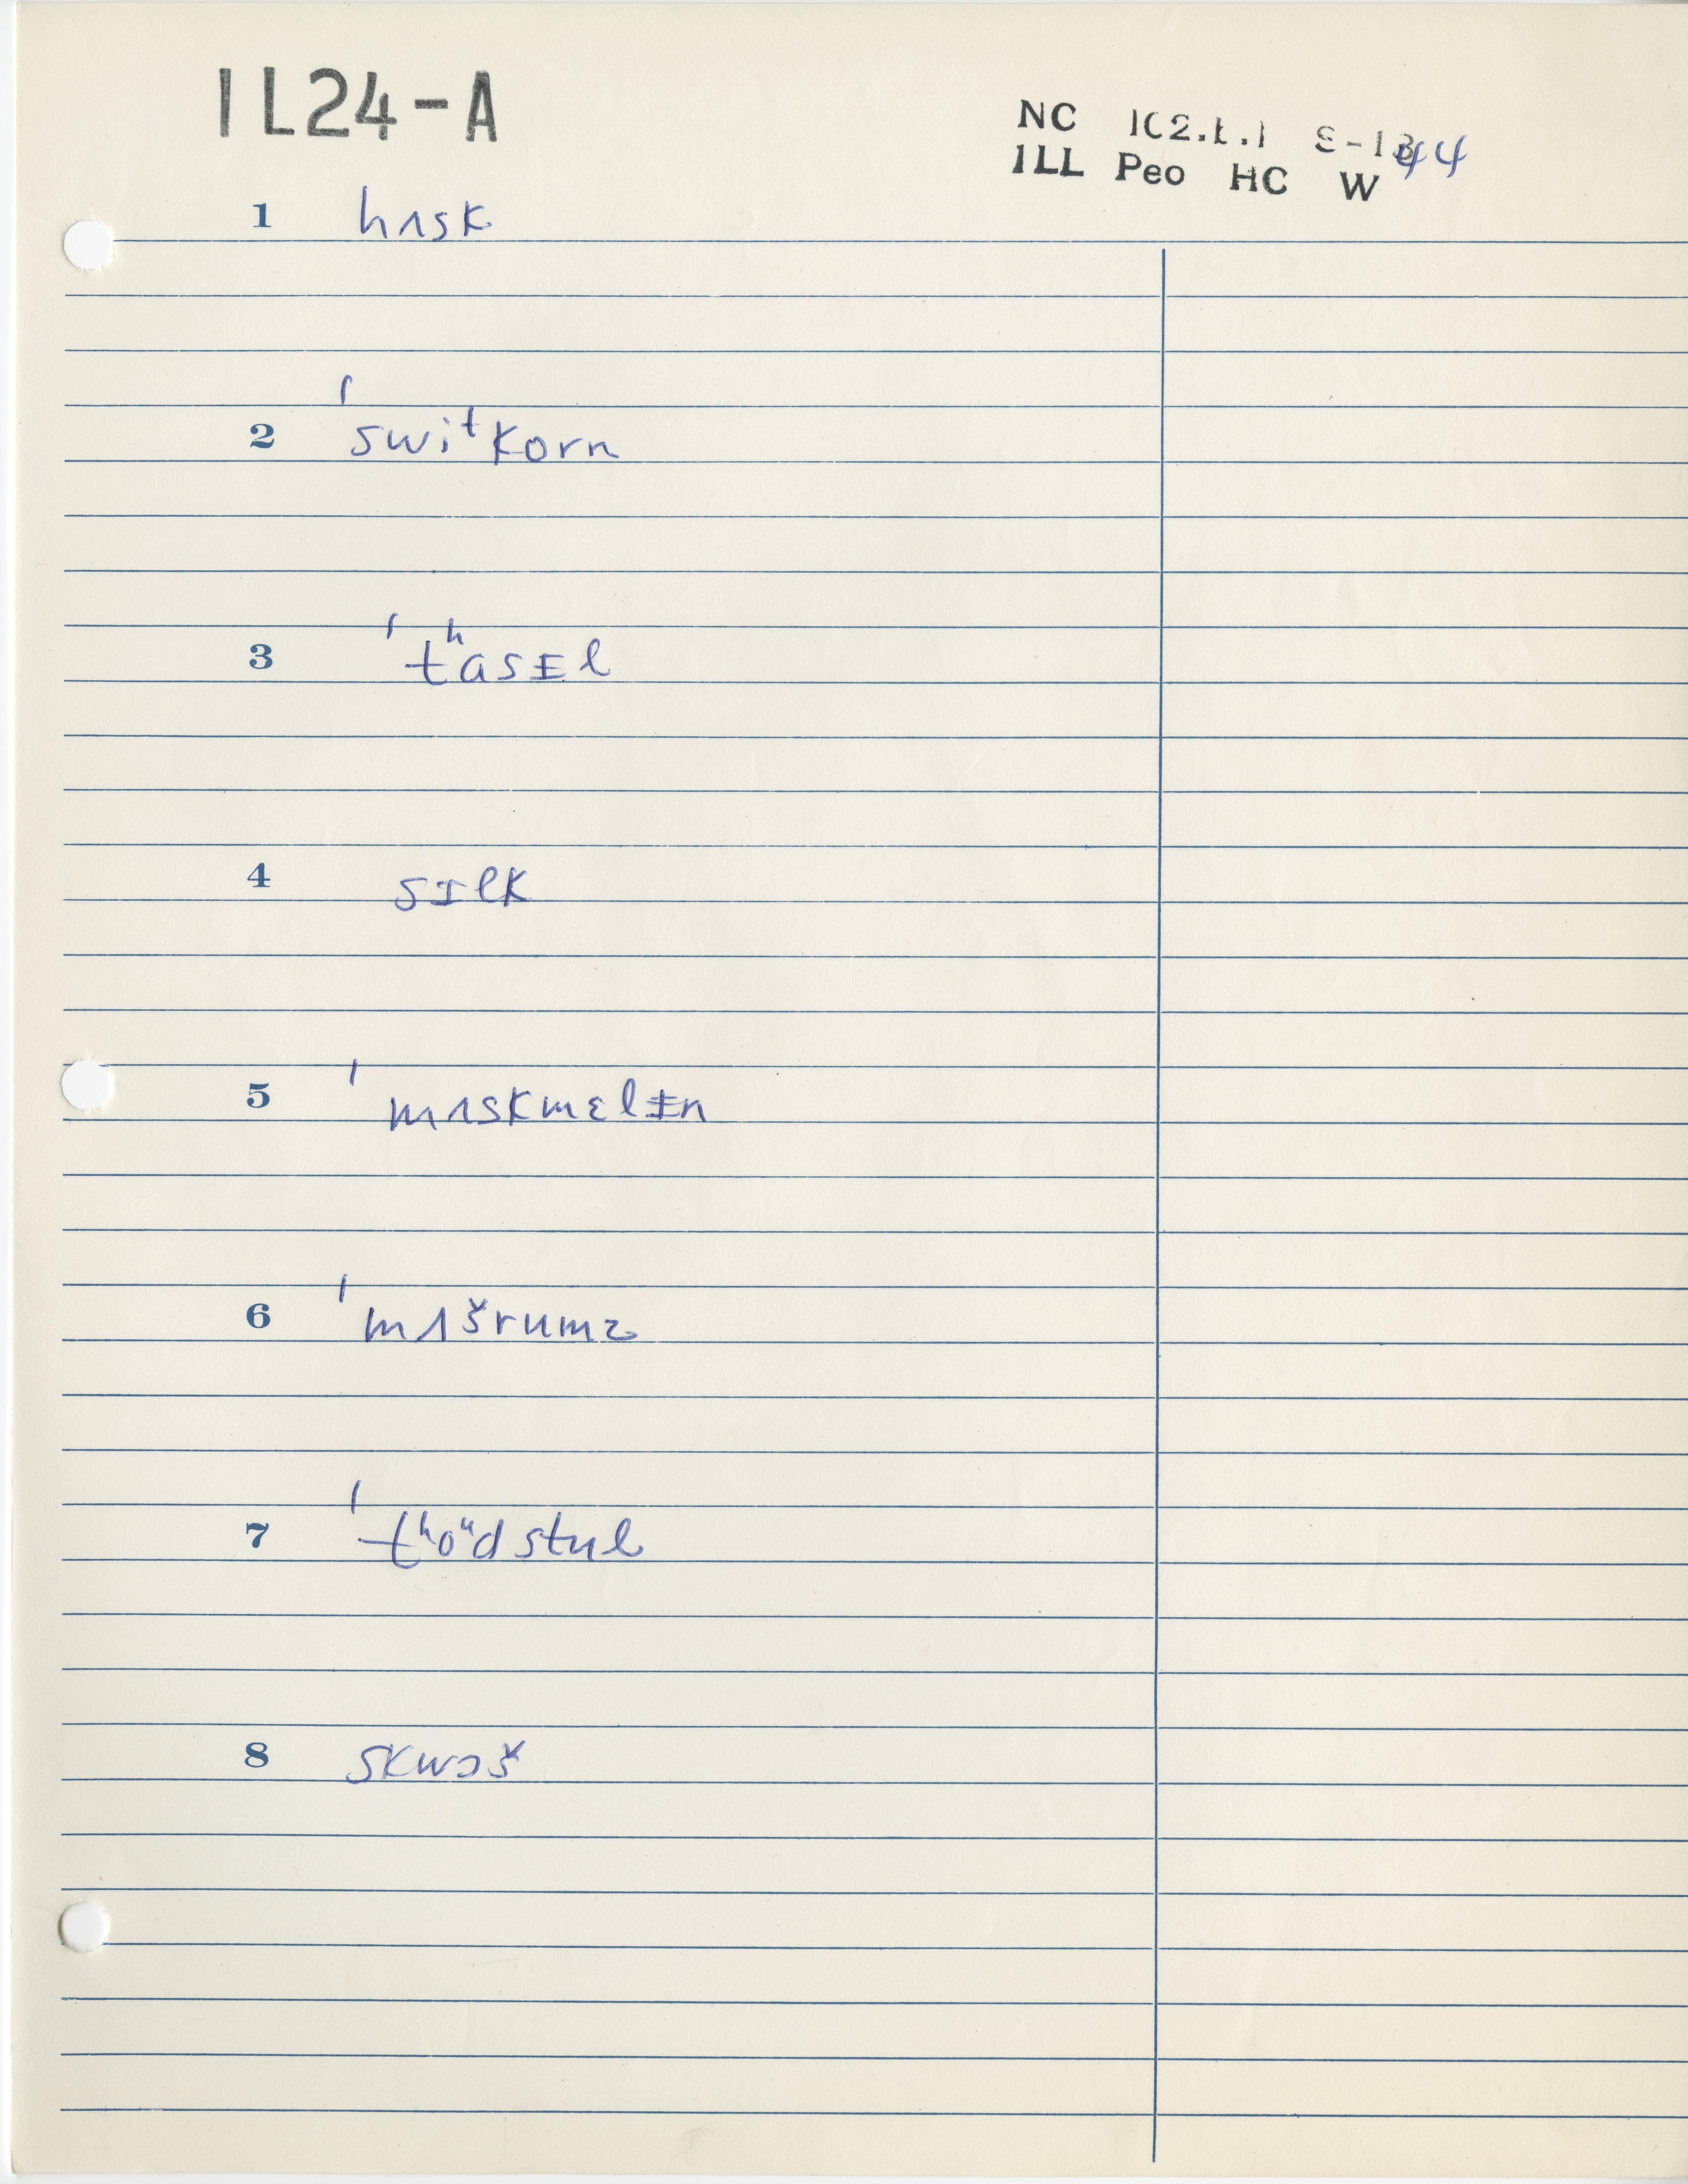 IL24-A
NC 102.1.1 S-13 44
ILL Peo HC W
1 hʌsk
2 ˈswitkorn
3 ˈtʰasɨl
4 sɪlk
5 ˈmʌskmɛlɨn
6 ˈmʌšrumz
7 ˈtʰoᵘdstul
8 skwɔš